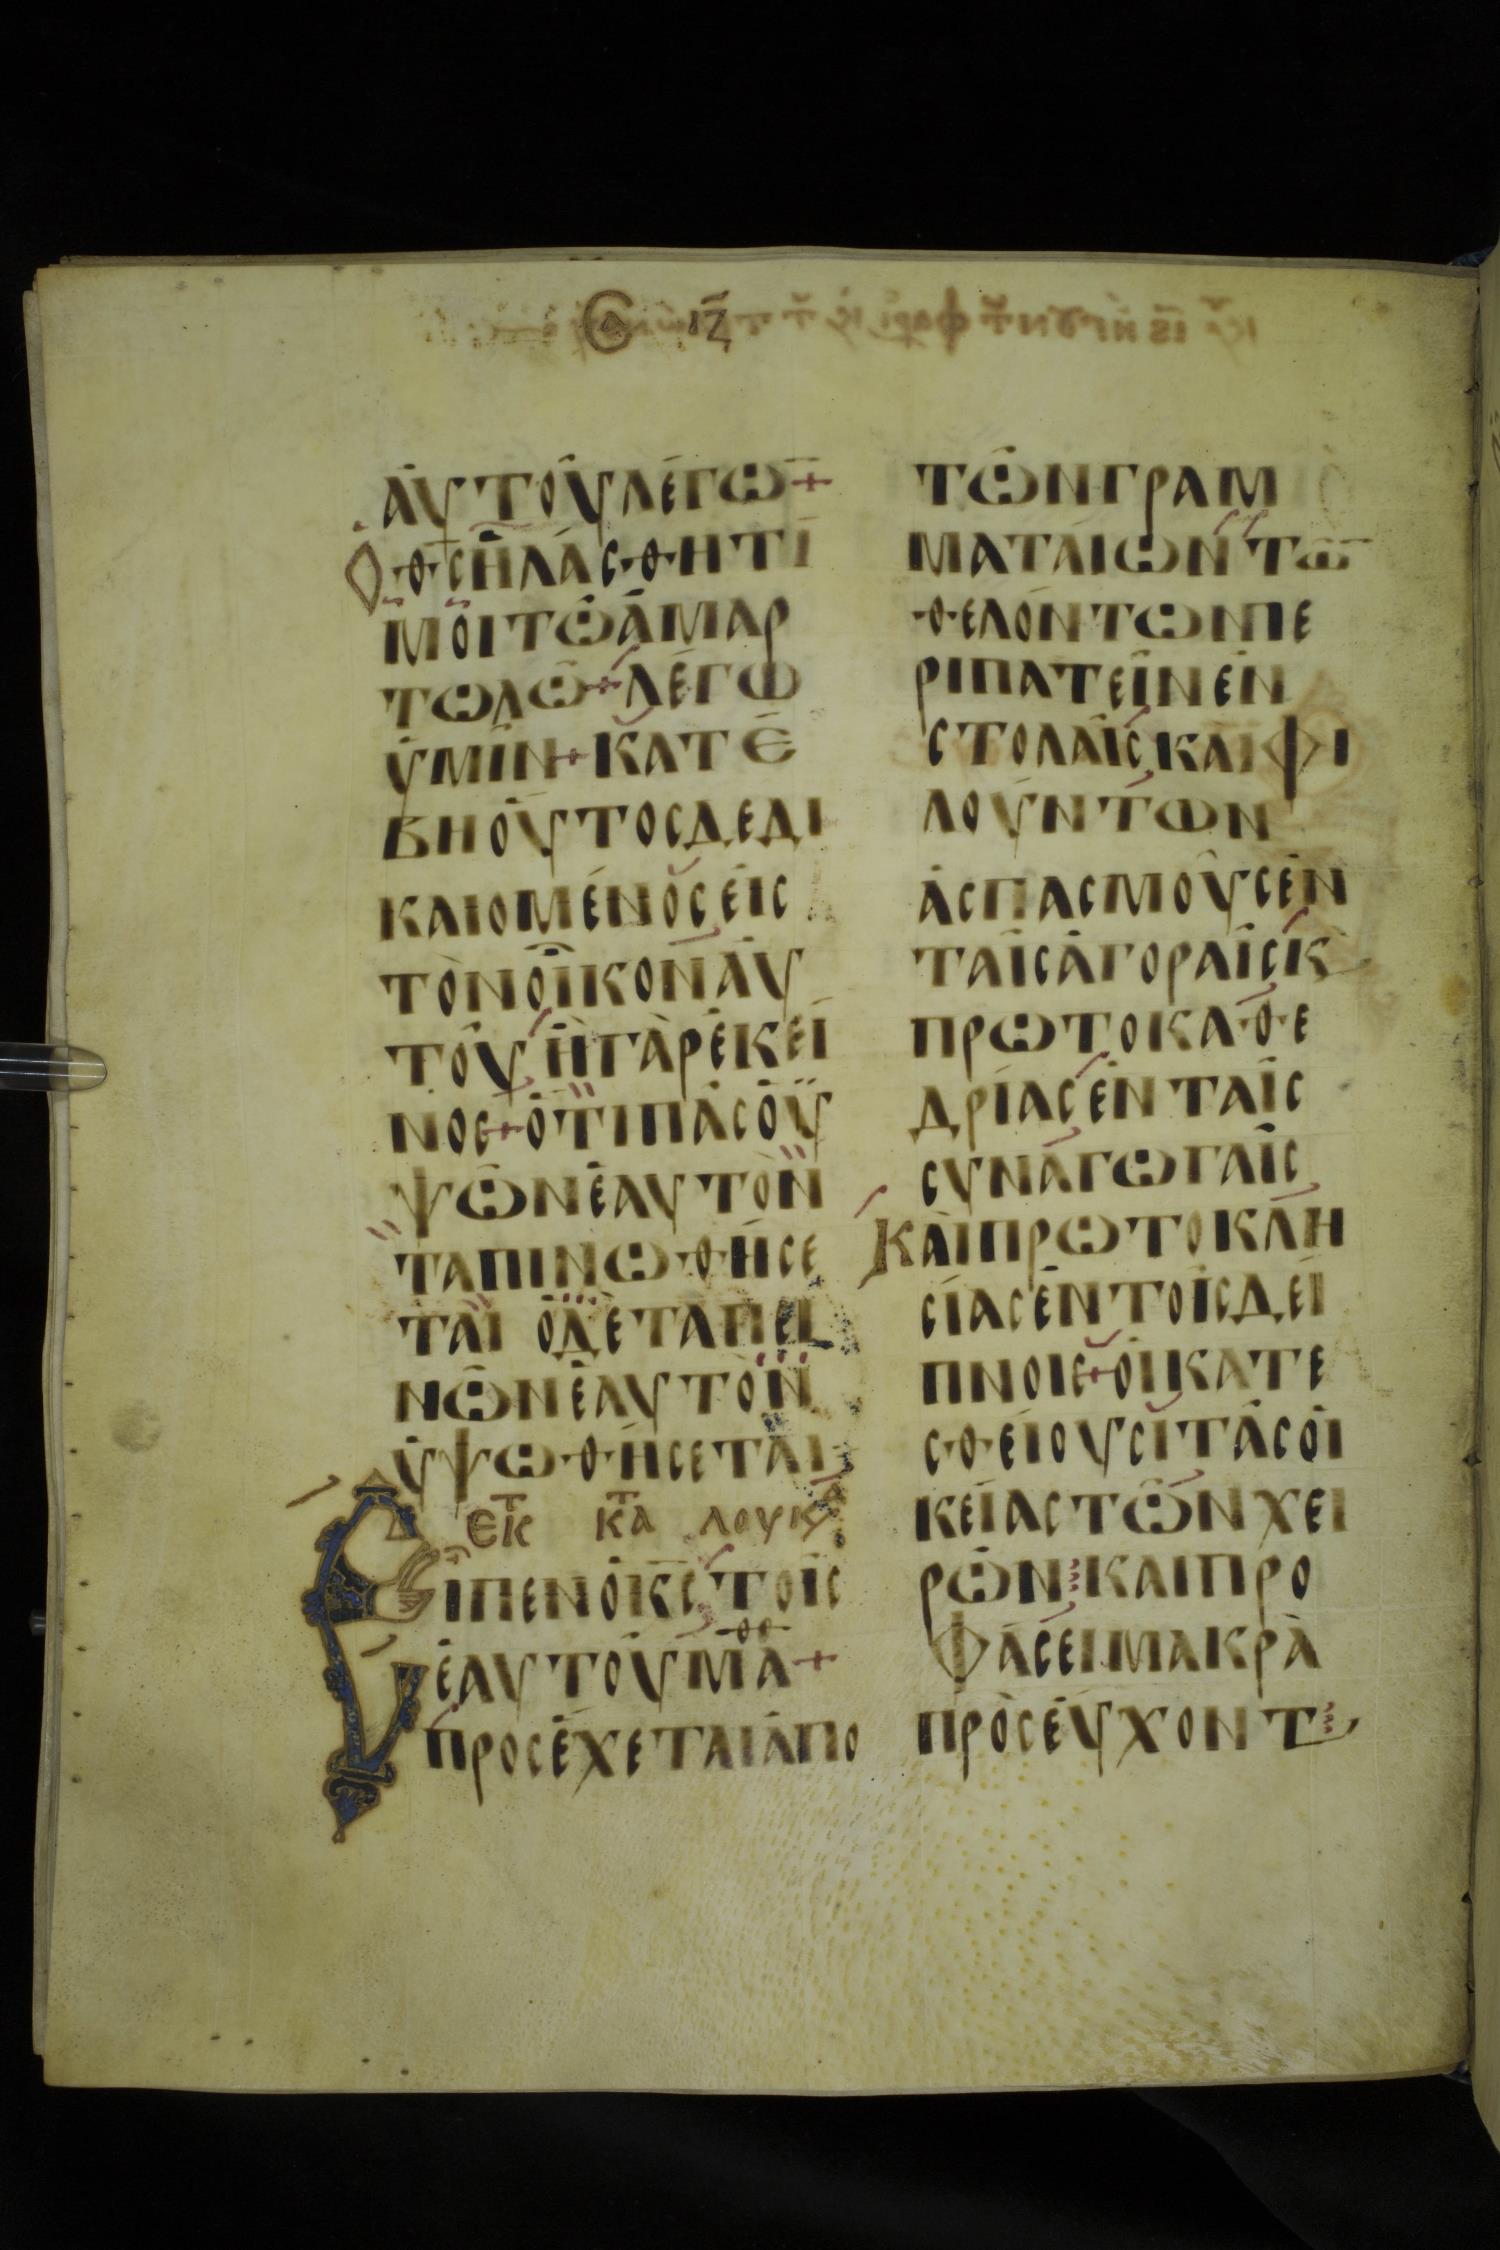 ΑΥΤΟΥΛΕΓΩ+
ΟΘΣΗΛΑΣΘΗΤΙ
ΜΟΙΤΩΑΜΑΡ
ΤΩΛΩ+ΛΕΓΩ
ΥΜΙΝ+ΚΑΤΕ
ΒΗΟΥΤΟΣΔΕΔΙ
ΚΑΙΟΜΕΝΟΣΕΙΣ
ΤΟΝΟΙΚΟΝΑΥ
ΤΟΥΗΓΑΡΕΚΕΙ
ΝΟΣ+ΟΤΙΠΑΣΟΥ
ΨΩΝΕΑΥΤΟΝ
ΤΑΠΙΝΩΘΗΣΕ
ΤΑΙ ΟΔΕΤΑΠΕΙ
ΝΩΝΕΑΥΤΟΝ
ΥΨΩΘΗΣΕΤΑΙ
ΕΚ ΚΤΑ ΛΟΥΚ
ΕΙΠΕΝΟΚΣΤΟΙΣ
ΕΑΥΤΟΥΜΑΘ+
ΠΡΟΣΕΧΕΤΑΙΑΠΟ
ΤΩΝΓΡΑΜ
ΜΑΤΑΙΩΝΤΩ
ΘΕΛΟΝΤΩΝΠΕ
ΡΙΠΑΤΕΙΝΕΝ
ΣΤΟΛΑΙΣΚΑΙΦΙ
ΛΟΥΝΤΩΝ
ΑΣΠΑΣΜΟΥΣΕΝ
ΤΑΙΣΑΓΟΡΑΙΣΚ
ΠΡΩΤΟΚΑΘΕ
ΔΡΙΑΣΕΝΤΑΙΣ
ΣΥΝΑΓΩΓΑΙΣ
ΚΑΙΠΡΩΤΟΚΛΗ
ΣΙΑΣΕΝΤΟΙΣΔΕΙ
ΠΝΟΙΣ+ΟΙΚΑΤΕ
ΣΘΕΙΟΥΣΙΤΑΣΟΙ
ΚΕΙΑΣΤΩΝΧΕΙ
ΡΩΝ⁝ΚΑΙΠΡΟ
ΦΑΣΕΙΜΑΚΡΑ
ΠΡΟΣΕΥΧΟΝΤ⁝